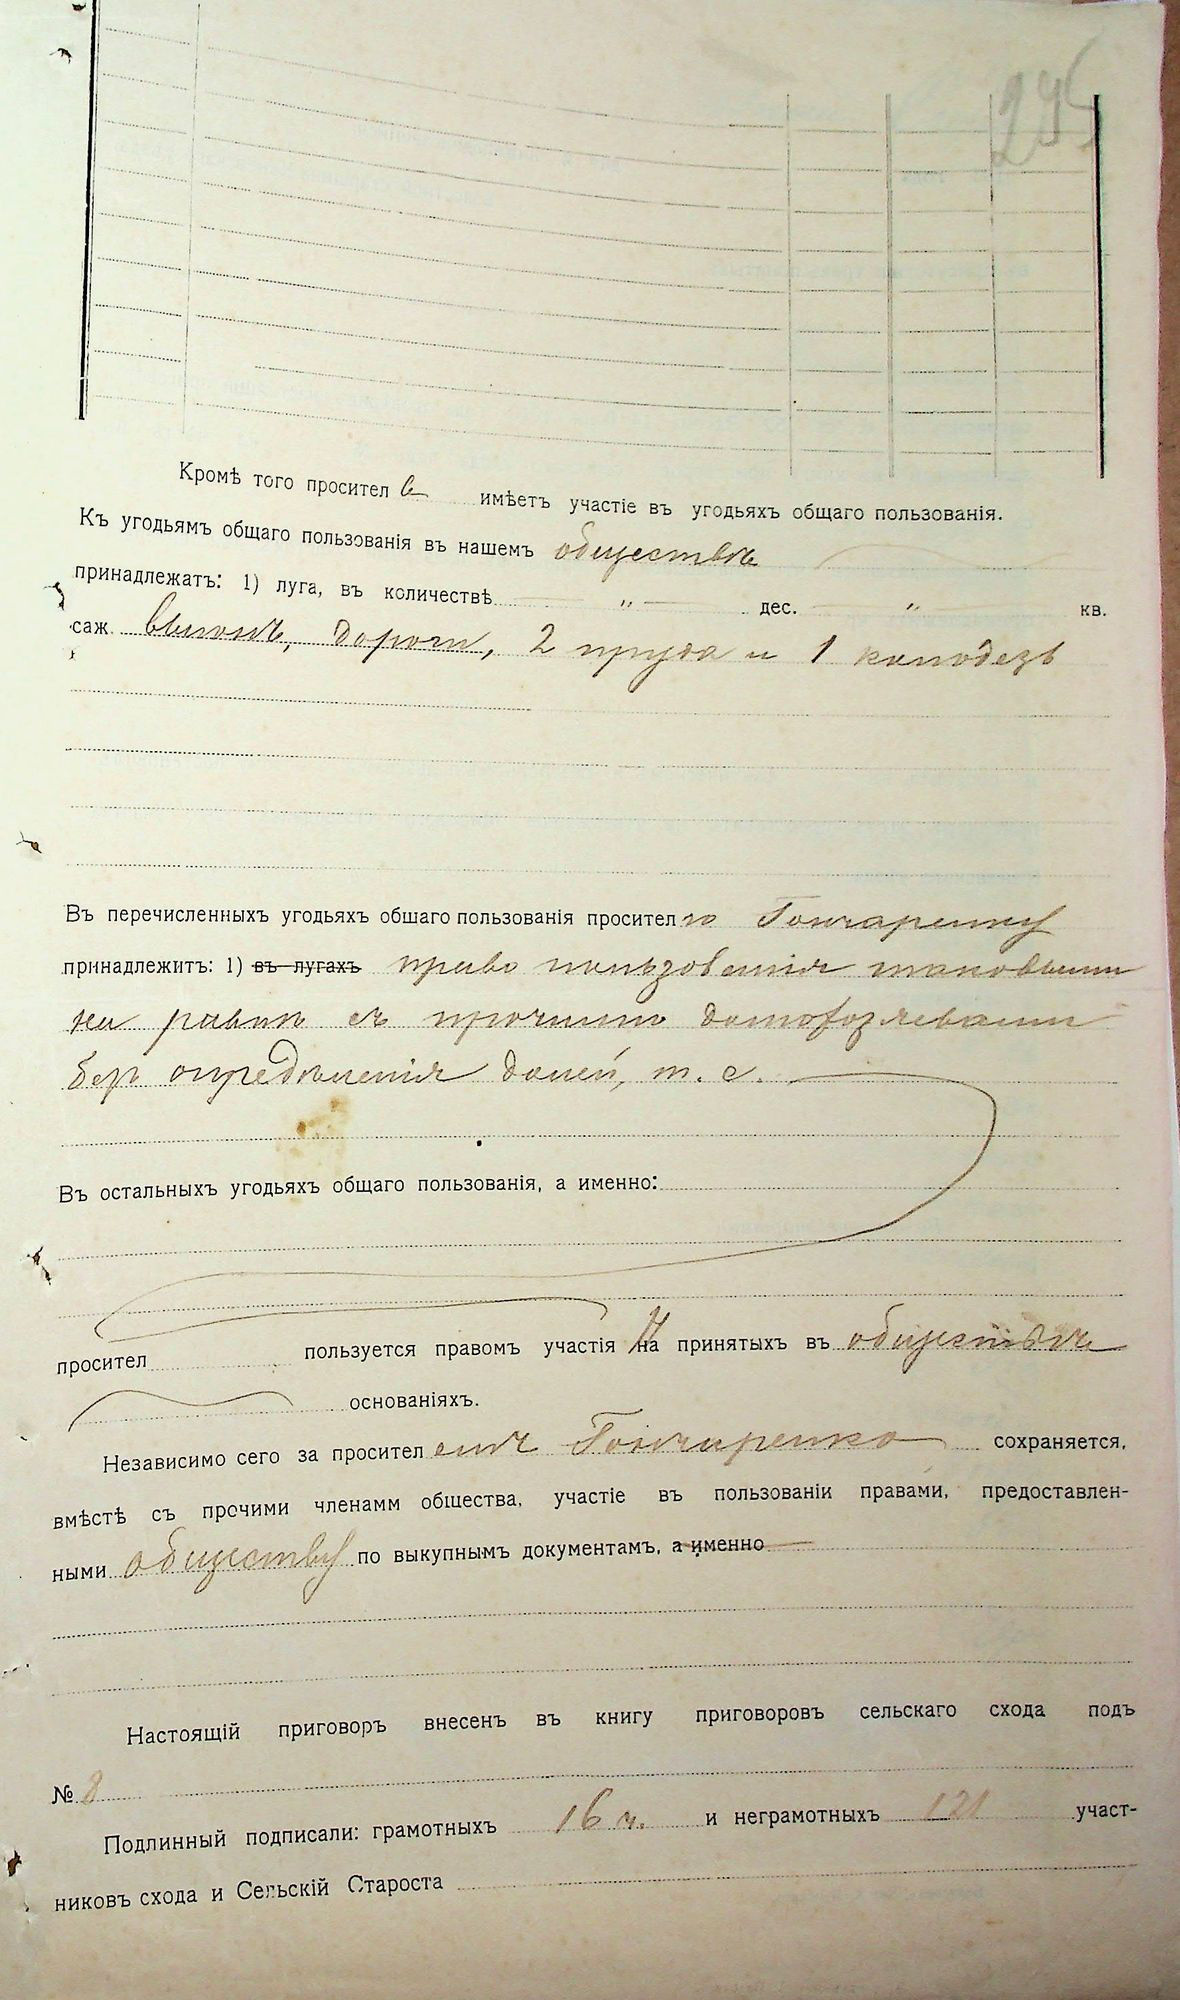 295
Кромѣ того просител ь имѣетъ участіе въ угодьяхъ общаго пользованія.
Къ угодьямъ общаго пользованія въ нашемъ обществѣ
принадлежатъ: 1) луга, въ количествѣ „ дес. „ кв.
саж. выгонъ, дороги, 2 пруда и 1 колодезь
Въ перечисленныхъ угодьяхъ обшаго пользованія просителю Гончаренку
принадлежитъ: 1) въ лугахъ право пользованія таковыми
на равнѣ съ прочими домохозяевами
безъ опредѣленія долей, т. е.
Въ остальныхъ угодьяхъ общаго пользованія, а именно:
просител пользуется правомъ участія на принятыхъ въ обществѣ
основаніяхъ.
Независимо сего за просителемъ Гончаренко сохраняется,
вмѣстѣ съ прочими членамм общества, участіе въ пользованіи правами, предоставлен-
ными обществу по выкупнымъ документамъ, а именно
Настоящій приговоръ внесенъ въ книгу приговоровъ сельскаго схода подъ
№ 8
Подлинный подписали: грамотныхъ 16 ч. и неграмотныхъ 121 участ-
никовъ схода и Сельскій Староста